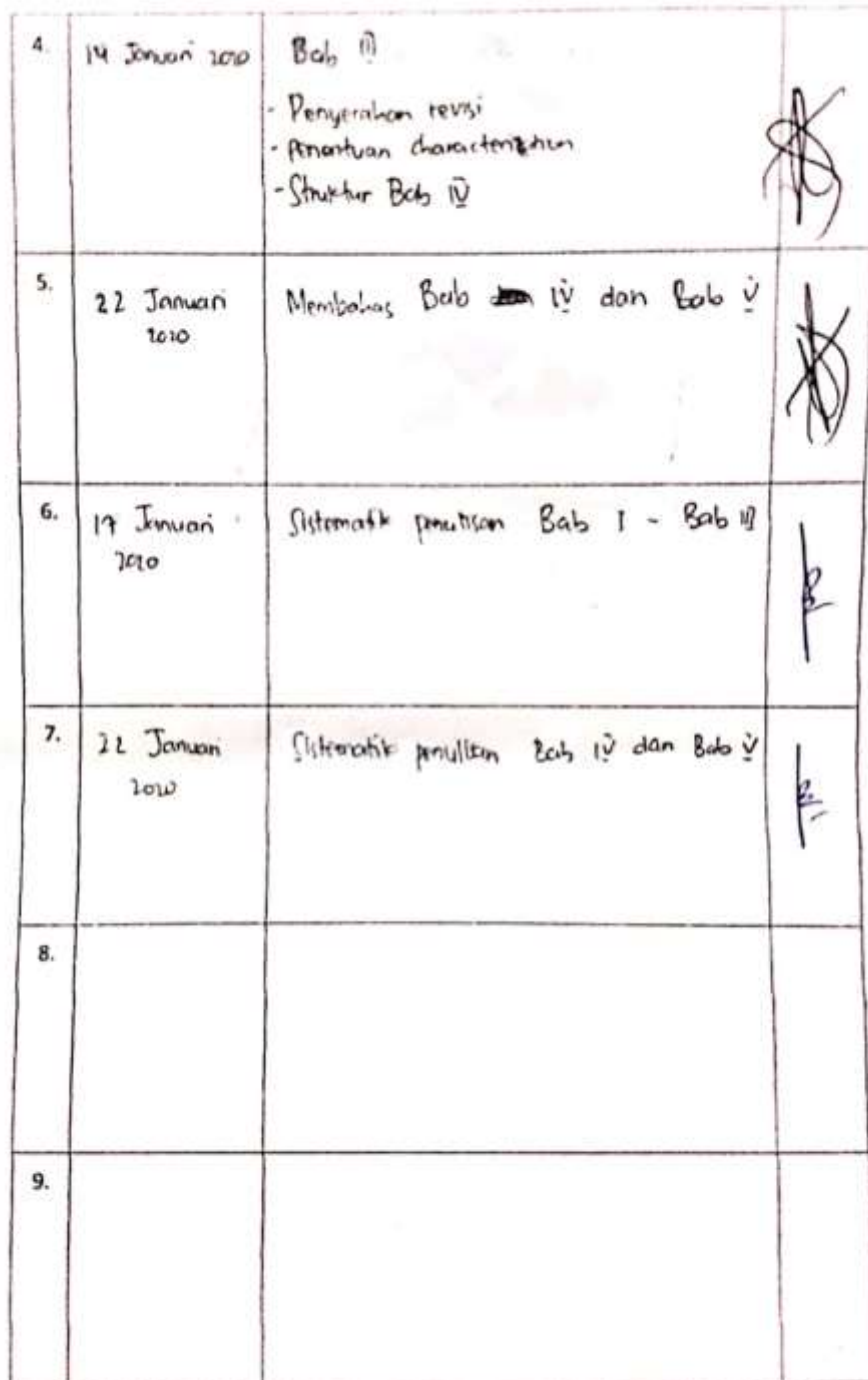 4.
14 Januari 2020
Bab III
- Penyerahan revisi
- Penentuan characterization
- Struktur Bab IV
5.
22 Januari
2020
Membahas Bab IV dan Bab V
6.
17 Januari
2020
Sistematik penulisan Bab I - Bab III
7.
22 Januari
2020
Sistematik penulisan Bab IV dan Bab V
8.
9.